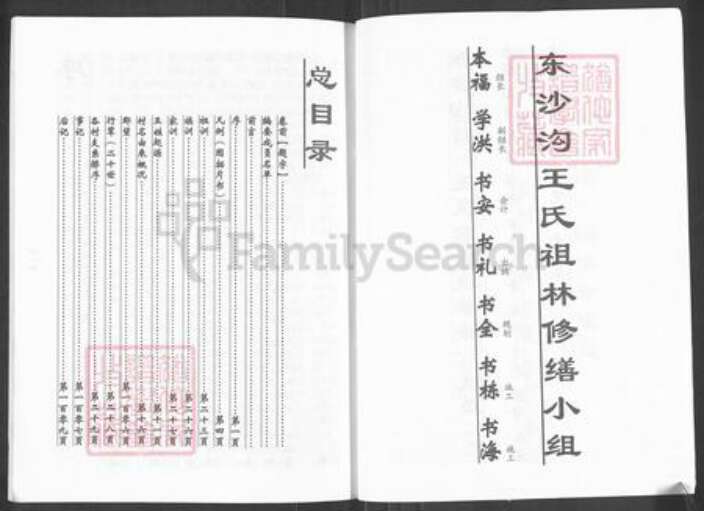 东沙沟王氏祖林修缮小组
本福 组长 学洪 副组长 书安 会计 书礼 书全 规划 书栋 施工 书海 施工
总目录
卷前【题字】
编委成员名单
前言
序 第一页
凡例（图拓片书） 第四页
祖训 第二十三页
族训 第二十六页
家训 第二十七页
王姓起源 第十一页
村名由来概况 第十六页
郡望 第一百零六页
行辈（二十世） 第二十八页
各村支系排序 第二十九页
事记 第一百零七页
后记 第一百零九页
FamilySearch